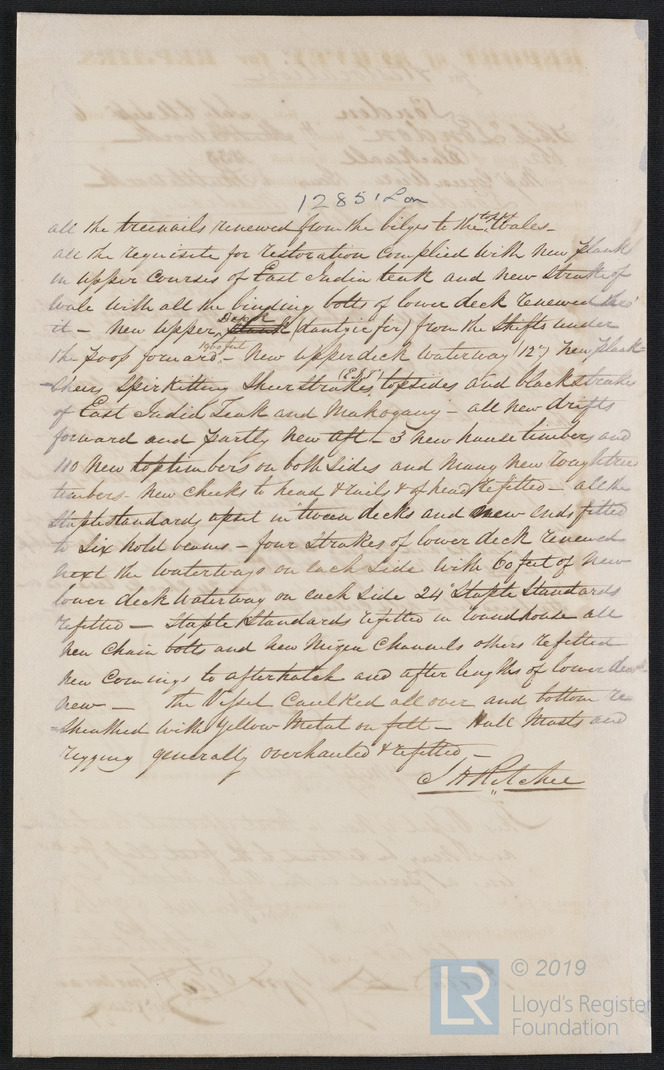 12851 Lon
all the treenails renewed from the bilges to the Wales -
all the requisite for restoration complied with new plank
in upper courses of East India teak and new strake of
Wale with all the bolts of lower deck renewed thro'
it - New Upper Deck (dantzic fir) from the shifts under
the poop forward - 1960 feet New upperdeck waterway (12") New plank
-sheers Spirkitting Sheerstrakes, topsides and blackstrakes
of East India Teak and Mahogany - all new drifts
forward and partly new aft - 3 new hause timbers and
110 New toptimbers on both sides and many new roughtree
timbers. New Cheeks to head & rails & of head refitted - all the
Staple standards apart in tween decks and new ends fitted
to six hold beams - four Strakes of lower deck renewed
next the waterways on each side with 60 feet of new
lower deck waterway on each side 24 Staple Standards
refitted - Staple Standards refitted in roundhouse all
new Chain bolts and new Mizen Channels others refitted
new Comings to afterhatch and after lengths of lower deck
new - The Vessel Caulked all over and bottom re
=sheathed with Yellow Metal on felt - Hull Masts and
rigging generally overhauled & refitted -
J H Ritchie
LR
© 2019
Lloyd's Register
Foundation